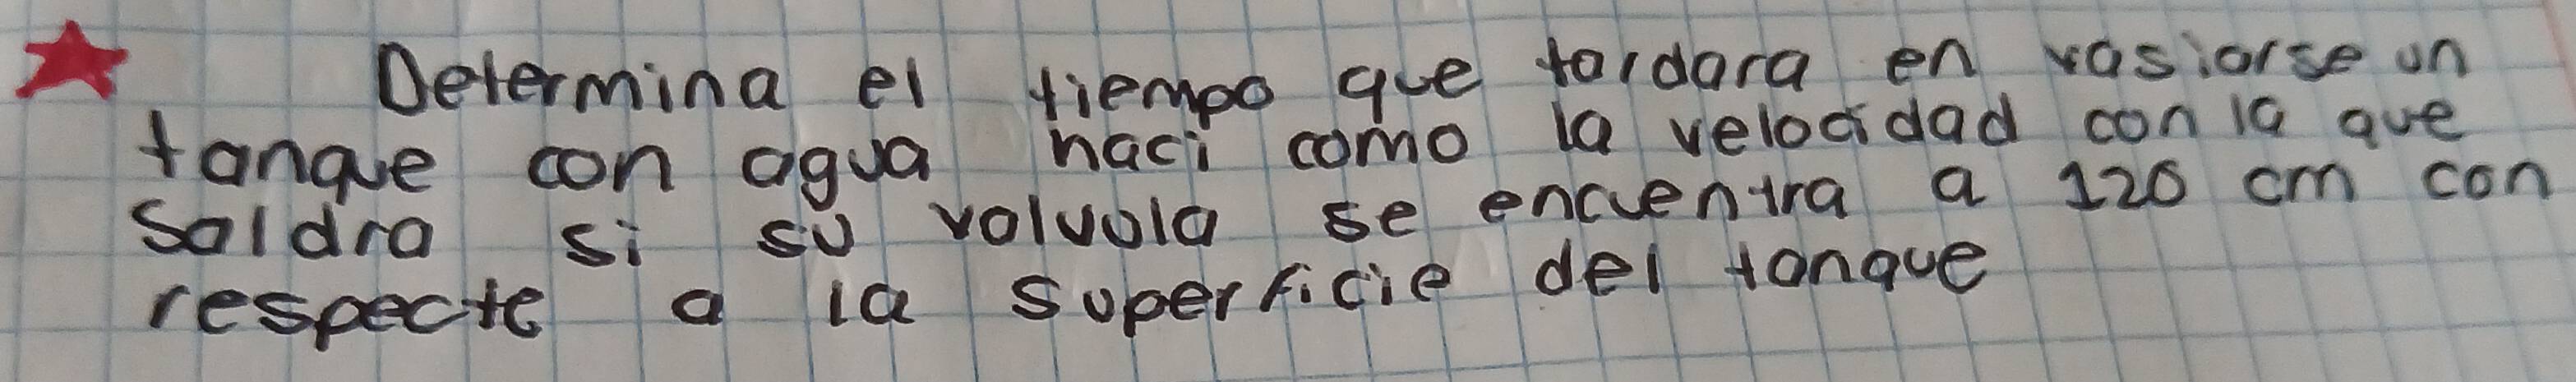 Determina el tiempo que tardara en vasiarse un
tanque con agua haci como la velocidad con la que
Saldra si su valvula se encuentra a 120 cm con
respecte a la superficie del tanque